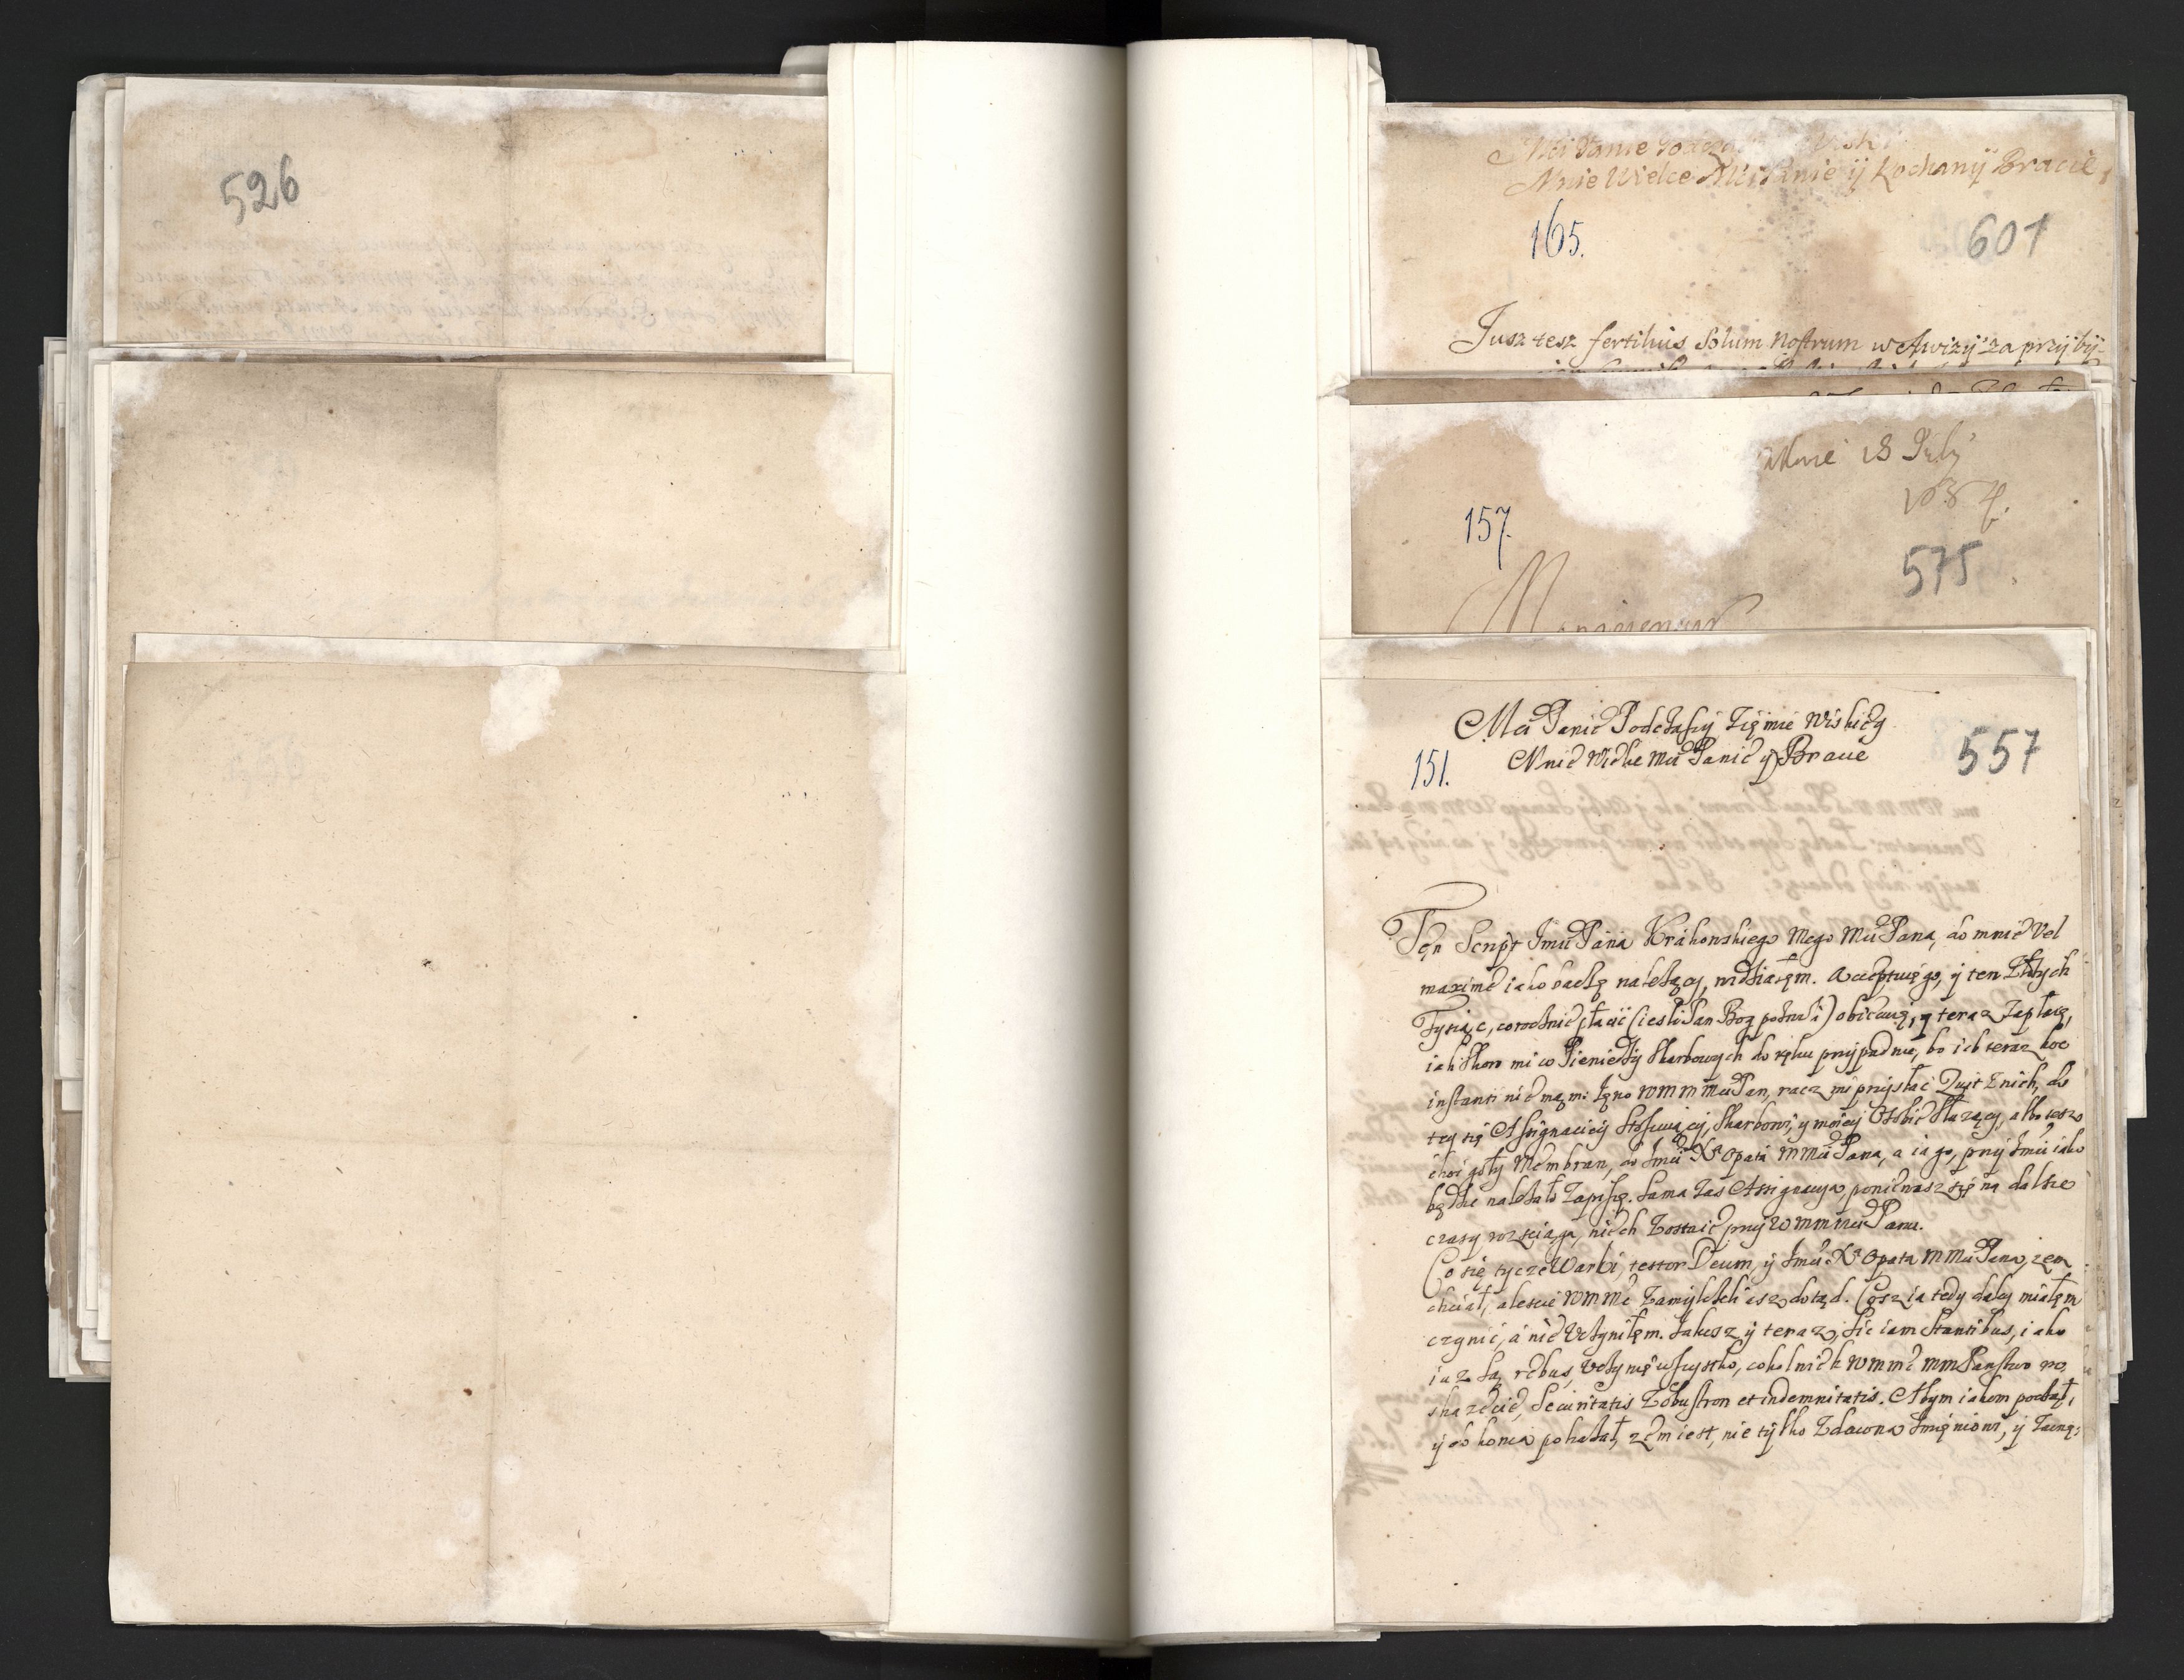 526
Mci Panie
Mnie Wielce Mci Panie ÿ Kochanÿ Bracie,
165.
601
Jusz tesz fertilius Solum Nostrum w Awizÿ zaprzÿbÿ-
18 July
157.
575
Mci Panie Podczaszÿ Zięmie Wiskieÿ
Mnie Wielce Mci Panie ÿ Bracie
151.
557
Tęn Script Jmci Pana Krakowskiego Mego Mci Pana, do mnie vel
maxime iako baczę należący, widziałęm. Acceptuię go, ÿ ten Złotych
Tysiąc, corocznie płacić (iesli Pan Bog pozwoli) obiecuię, ÿ teraz Zapłacę,
iak skoro mi co Pieniedzÿ skarbowych do ręku przÿpadnie, bo ich teraz hoc
instanti nie mąm: Jęno WMMMciPan, racz mi przÿsłać Quit Znich, do
teÿ się Assignacieÿ Stosuiącÿ, Skarbowi, ÿ moieÿ Osobie służącÿ, albo tesz
choc gołÿ Membran, do Jmci Xa Opata MMci Pana, a ia go, przÿ Jmci iako
będzie należało Zapiszę. Sama Zas Assignacya, poniewasz się na dalsze
czasy rozsciąga, niech Zostaie przÿ WMMMci Panu.
Co się tycze Warki, testor Deum, ÿ Jmci Xa Opata MMci Pana, zem
chciał, alescie WMMc Zamÿleli asz dotąd. Cosz ia tedy daleÿ miałęm
czynić, á nie Vczyniłęm. Jakosz ÿ teraz, sic iam Stantibus, iako
iuz są rebus, Vczynię wszystko, cokolwiek WMMc MMPanstwo ro,
skażecie, Securitatis Zobustron et indemnitatis. Abym iakom począł,
ÿ do konca pokazał, zem iest, nie tÿlko Zdawna Jmięniowi, ÿ Zacnę: